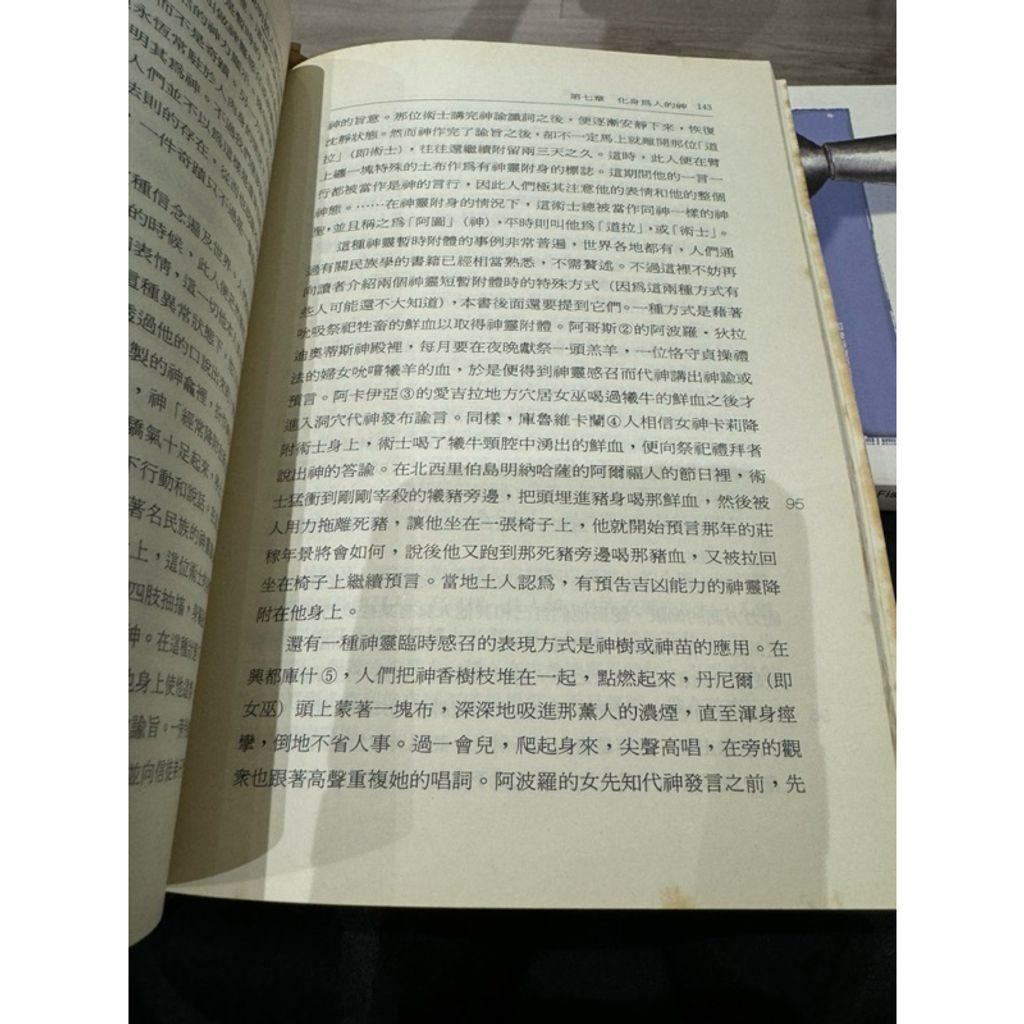 而不是奇蹟。另
永恆常駐於人
明其爲神。不過
人們並不以爲這
法則的存在。
一件奇蹟只不過是一
種信念遍及世界。人
的時候，此人便
表情，這一切
這種異常狀態下，
透過他的口說出
製的神龕裡，
，神「經常降
驕氣十足起來，
不行動和說話。
著名民族的神
上，這位術士
四肢抽搐，
神。在這種
身上使他
諭旨。
並向信徒
第七章　化身爲人的神　143
神的旨意。那位術士講完神諭讖詞之後，便逐漸安靜下來，恢復
沈靜狀態。然而神作完了諭旨之後，卻不一定馬上就離開那位「道
拉」（即術士），往往還繼續附留兩三天之久。這時，此人便在臂
上纏一塊特殊的土布作爲有神靈附身的標誌。這期間他的一言一
行都被當作是神的言行，因此人們極其注意他的表情和他的整個
神態。……在神靈附身的情況下，這術士總被當作同神一樣的神
聖，並且稱之爲「阿圖」（神），平時則叫他爲「道拉」，或「術士」。
這種神靈暫時附體的事例非常普遍，世界各地都有，人們通
過有關民族學的書籍已經相當熟悉，不需贅述。不過這裡不妨再
向讀者介紹兩個神靈短暫附體時的特殊方式（因爲這兩種方式有
些人可能還不大知道），本書後面還要提到它們。一種方式是藉著
吮吸祭祀牲畜的鮮血以取得神靈附體。阿哥斯②的阿波羅・狄拉
迪奧蒂斯神殿裡，每月要在夜晚獻祭一頭羔羊，一位恪守貞操禮
法的婦女吮嚐犧羊的血，於是便得到神靈感召而代神講出神諭或
預言。阿卡伊亞③的愛吉拉地方穴居女巫喝過犧牛的鮮血之後才
進入洞穴代神發布諭言。同樣，庫魯維卡蘭④人相信女神卡莉降
附術士身上，術士喝了犧牛頸腔中湧出的鮮血，便向祭祀禮拜者
說出神的答諭。在北西里伯島明納哈薩的阿爾福人的節日裡，術
士猛衝到剛剛宰殺的犧豬旁邊，把頭埋進豬身喝那鮮血，然後被　95
人用力拖離死豬，讓他坐在一張椅子上，他就開始預言那年的莊
稼年景將會如何，說後他又跑到那死豬旁邊喝那豬血，又被拉回
坐在椅子上繼續預言。當地土人認爲，有預告吉凶能力的神靈降
附在他身上。
還有一種神靈臨時感召的表現方式是神樹或神苗的應用。在
興都庫什⑤，人們把神香樹枝堆在一起，點燃起來，丹尼爾（即
女巫）頭上蒙著一塊布，深深地吸進那薰人的濃煙，直至渾身痙
攣，倒地不省人事。過一會兒，爬起身來，尖聲高唱，在旁的觀
衆也跟著高聲重複她的唱詞。阿波羅的女先知代神發言之前，先